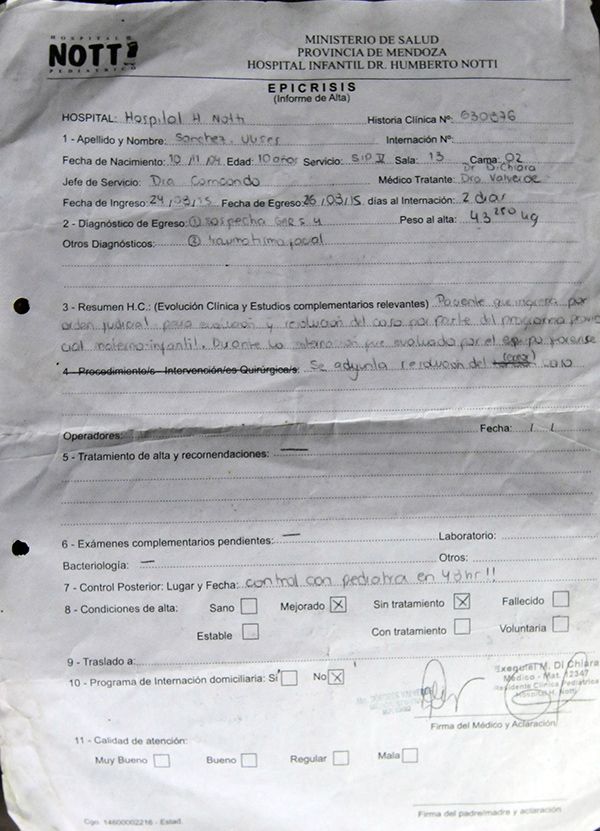 HOSPITAL
NOTTI
PEDIATRICO
MINISTERIO DE SALUD
PROVINCIA DE MENDOZA
HOSPITAL INFANTIL DR. HUMBERTO NOTTI
EPICRISIS
(Informe de Alta)
HOSPITAL: Hospital H Notti Historia Clínica Nº: 630876
1 - Apellido y Nombre: Sanchez, Ulises Internación Nº:
Fecha de Nacimiento: 10/11/04 Edad: 10 años Servicio: SIP V Sala: 13 Cama: 02
Jefe de Servicio: Dra Médico Tratante: Dr Di Chiara Dra. Valverde
Fecha de Ingreso: 24/03/15 Fecha de Egreso: 26/03/15 días al Internación: 2 días
2 - Diagnóstico de Egreso: ① sospecha Peso al alta: 43 250 kg
Otros Diagnósticos: ② traumatismo facial
3 - Resumen H.C.: (Evolución Clínica y Estudios complementarios relevantes) Paciente que ingresa por
orden judicial para evaluación y resolución del caso por parte del programa provin
cial materno-infantil. Durante la internación fue evaluado por el equipo forense
4 - Procedimiento/s - Intervención/es Quirúrgica/s: Se adjunta resolución del caso
Operadores: Fecha: / /
5 - Tratamiento de alta y recomendaciones: —
6 - Exámenes complementarios pendientes: — Laboratorio:
Bacteriología: — Otros:
7 - Control Posterior: Lugar y Fecha: control con pediatra en 48hr!!
8 - Condiciones de alta: Sano Mejorado X Sin tratamiento X Fallecido
Estable Con tratamiento Voluntaria
9 - Traslado a:
10 - Programa de Internación domiciliaria: Si No X
Exequiel M. Di Chiara
Médico - Mat. 12347
Residente Clínica Pediátrica
Hospital H. Notti
Firma del Médico y Aclaración
11 - Calidad de atención:
Muy Bueno Bueno Regular Mala
Firma del padre/madre y aclaración
Cgo. 14600002216 - Estad.